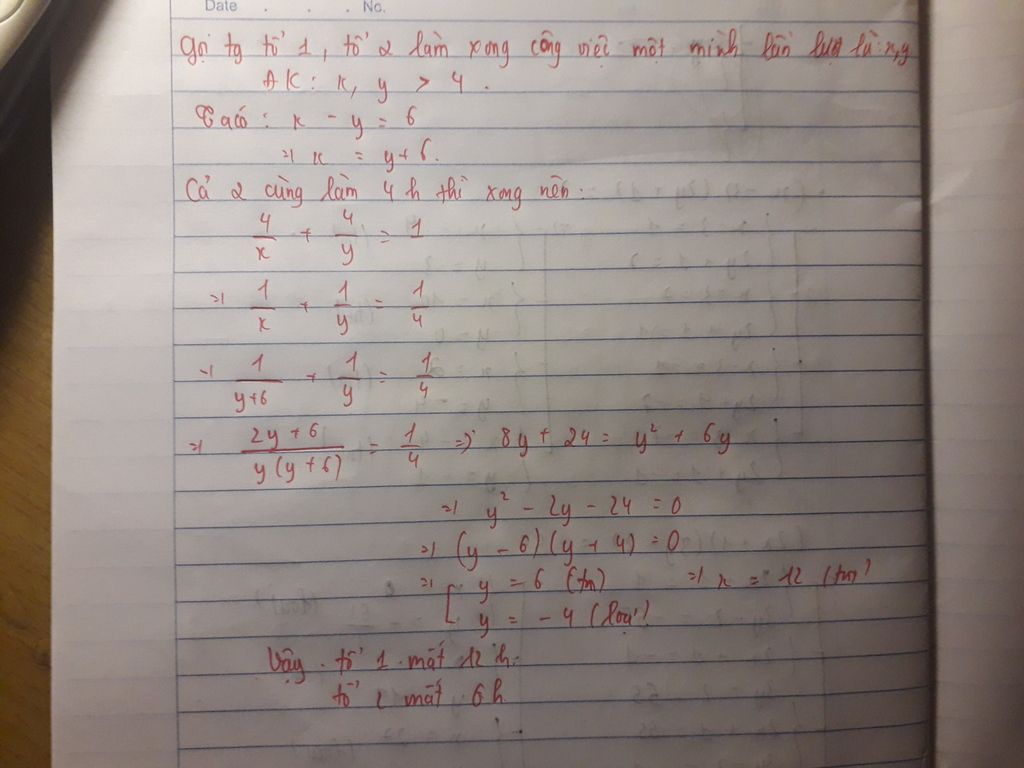 Date . . . No.
Gọi tg tổ 1, tổ 2 làm xong công việc một mình lần lượt là: x, y
ĐK: x, y > 4.
Ta có: x - y = 6
=> x = y + 6.
Cả 2 cùng làm 4 h thì xong nên:
4/x + 4/y = 1
=> 1/x + 1/y = 1/4
=> 1/(y+6) + 1/y = 1/4
=> (2y + 6)/(y(y+6)) = 1/4 => 8y + 24 = y² + 6y
=> y² - 2y - 24 = 0
=> (y - 6)(y + 4) = 0
=> [ y = 6 (tm) => x = 12 (tm)
y = -4 (loại)
Vậy tổ 1 mất 12 h.
tổ 2 mất 6h